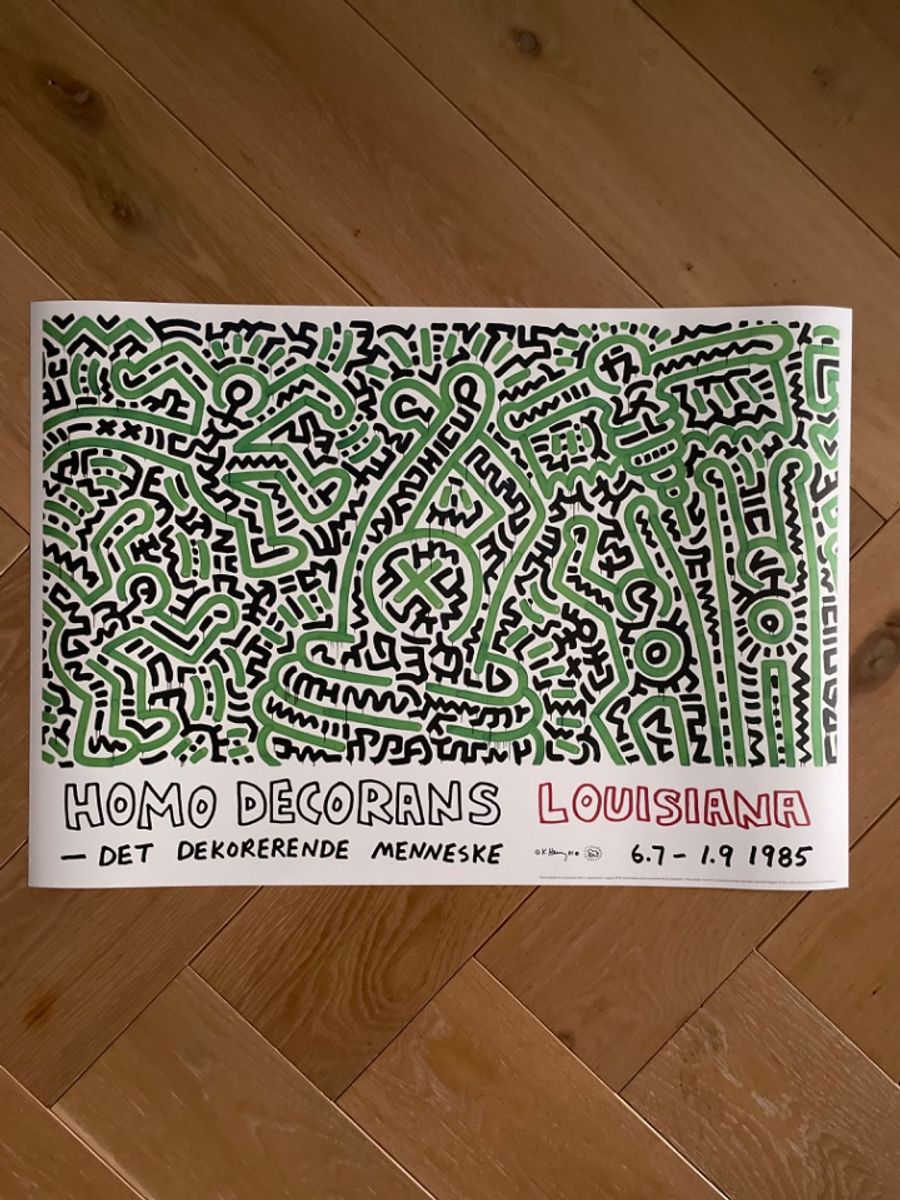 HOMO DECORANS LOUISIANA
— DET DEKORERENDE MENNESKE
© K. Haring
6.7 – 1.9 1985